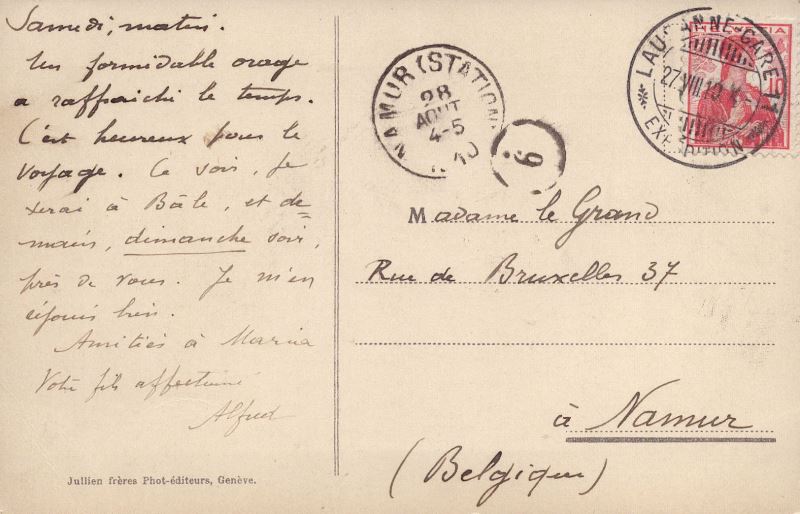 Samedi, matin.
Un formidable orage
a raffraichi le temps.
C'est heureux pour le
voyage. Ce soir, je
serai à Bâle, et de-
main, dimanche soir,
près de vous. Je m'en
réjouis bien.
Amitiés à Maria
Votre fils affectionné
Alfred
Jullien frères Phot-éditeurs, Genève.
NAMUR (STATION)
28
AOUT
4-5
10
9
LAUSANNE-GARE
27.VIII.10
EXPEDITION
HELVETIA
Madame le Grand
Rue de Bruxelles 37
à Namur
(Belgique)